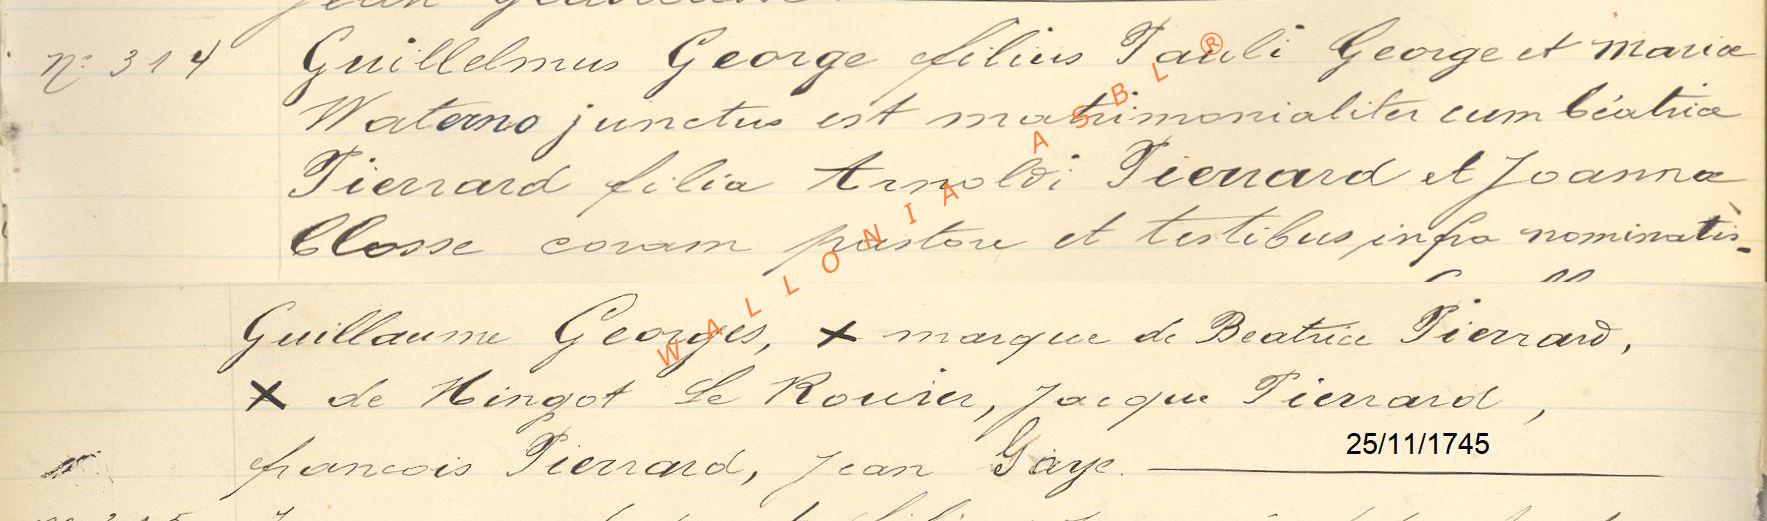 Nº 314 Guillelmus George filius Pauli George et Mariæ
Waterno junctus est matrimonialiter cum Béatrice
Pierrard filia Arnoldi Pierrard et Joannæ
Closse coram pastore et testibus infra nominatis
Guillaume Georges, x marque de Beatrice Pierrard,
x de Hingot Le Rouier, Jacque Pierrard,
francois Pierrard, Jean Gaye.
25/11/1745
WALLONIA ASBL ®